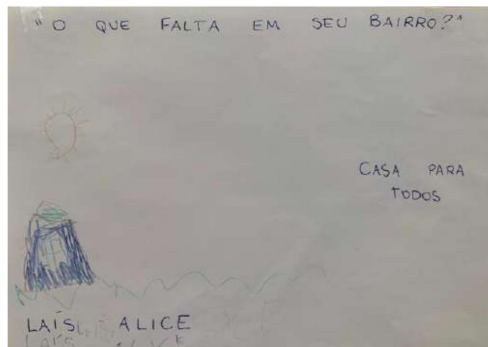 "O QUE FALTA EM SEU BAIRRO?"
CASA PARA
TODOS
LAÍS ALICE